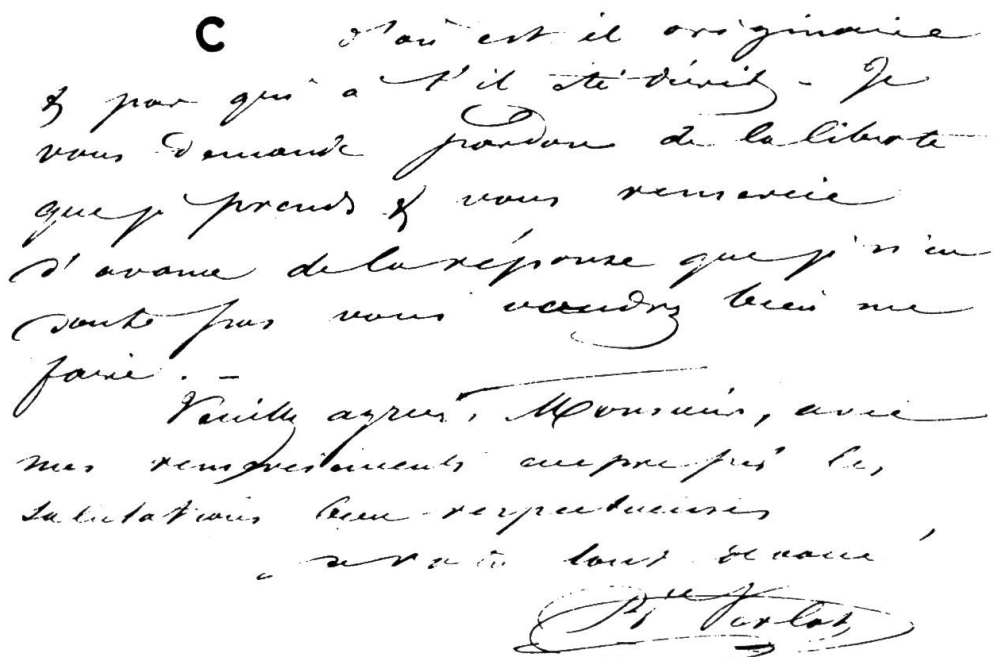 C d'où est il originaire
& par qui a t'il été décrit - Je
vous demande pardon de la liberte
que je prends & vous remercie
d'avance de la réponse que je n'en
doute pas vous voudrez bien me
faire . -
Veuillez agréer, Monsieur, avec
mes remerciements les
salutations bien respectueuses
de votre tout devoué
Verlot